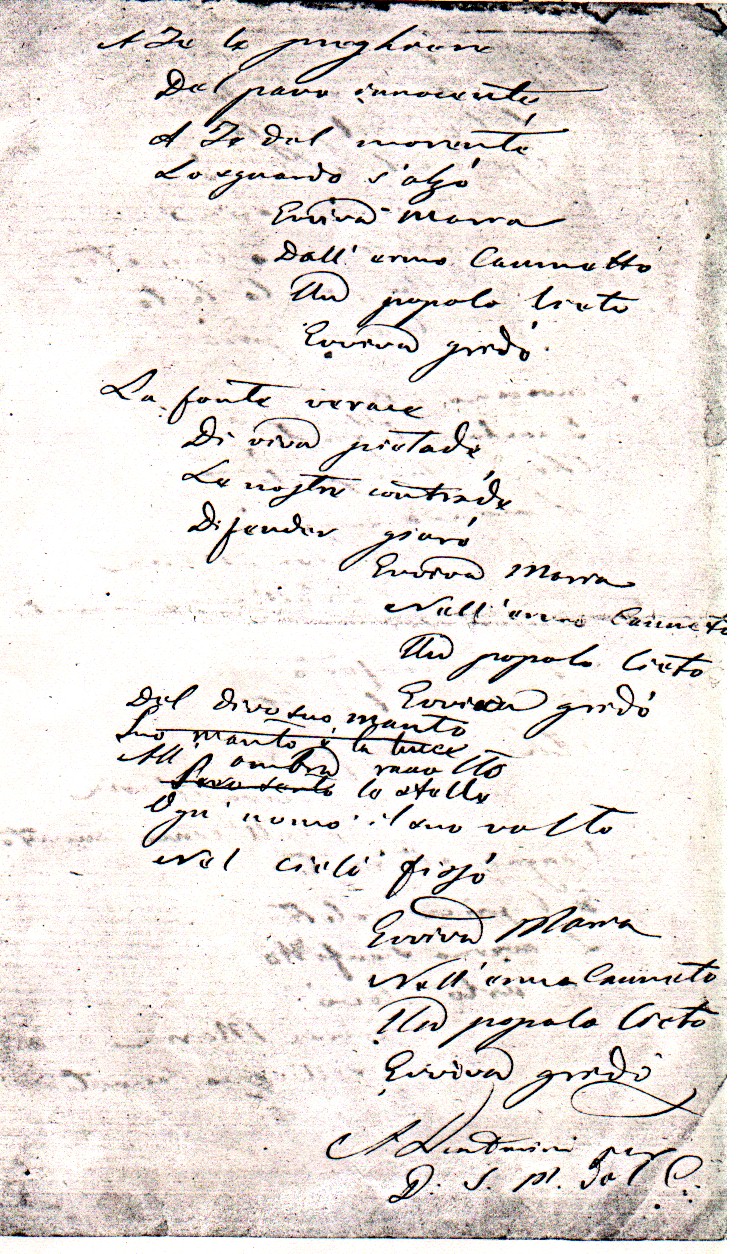 A Te le preghiere
Del pavo innocente
A Te del morente
Lo sguardo s'alzó
Evviva Maria
Dall' ermo Canneto
Un popolo lieto
Evviva gridó
La fonte verace
Di viva pietade
Le nostre contrade
Difender giuró
Evviva Maria
Nell' ermo Canneto
Un popolo lieto
Evviva gridó
Del divo suo manto
Suo manto è la luce
All' ombra raccolto
le stelle
Ogn' uomo il suo volto
Nel cielo fissó
Evviva Maria
Nell' ermo Canneto
Un popolo lieto
Evviva gridó
A
D. S. M. Del C.